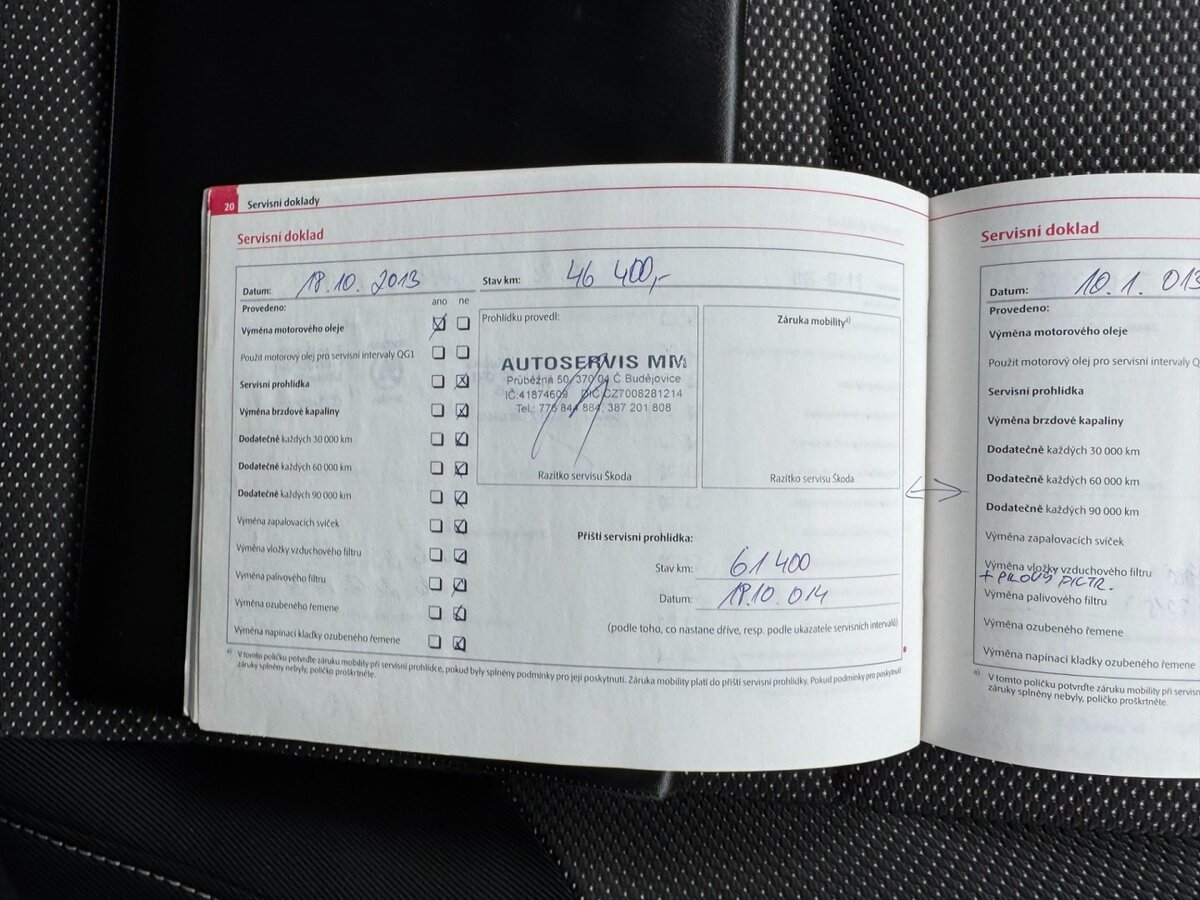 20 Servisní doklady
Servisní doklad
Datum: 18.10. 2013 Stav km: 46 400,-
Provedeno: ano ne
Výměna motorového oleje
Použit motorový olej pro servisní intervaly QG1
Servisní prohlídka
Výměna brzdové kapaliny
Dodatečně každých 30 000 km
Dodatečně každých 60 000 km
Dodatečně každých 90 000 km
Výměna zapalovacích svíček
Výměna vložky vzduchového filtru
Výměna palivového filtru
Výměna ozubeného řemene
Výměna napínací kladky ozubeného řemene
Prohlídku provedl:
AUTOSERVIS MM
Průběžná 50, 370 04 Č.Budějovice
IČ:41874609 DIČ:CZ7008281214
Tel.: 776 844 884, 387 201 808
Razítko servisu Škoda
Záruka mobility a)
Razítko servisu Škoda
Příští servisní prohlídka:
Stav km: 61 400
Datum: 18.10. 014
(podle toho, co nastane dříve, resp. podle ukazatele servisních intervalů)
a) V tomto políčku potvrďte záruku mobility při servisní prohlídce, pokud byly splněny podmínky pro její poskytnutí. Záruka mobility platí do příští servisní prohlídky. Pokud podmínky pro poskytnutí
záruky splněny nebyly, políčko proškrtněte.
Servisní doklad
Datum: 10. 1. 013
Provedeno:
Výměna motorového oleje
Použit motorový olej pro servisní intervaly
Servisní prohlídka
Výměna brzdové kapaliny
Dodatečně každých 30 000 km
Dodatečně každých 60 000 km
Dodatečně každých 90 000 km
Výměna zapalovacích svíček
Výměna vložky vzduchového filtru
+ PYLOVÝ FILTR.
Výměna palivového filtru
Výměna ozubeného řemene
Výměna napínací kladky ozubeného řemene
a) V tomto políčku potvrďte záruku mobility při
záruky splněny nebyly, políčko proškrtněte.